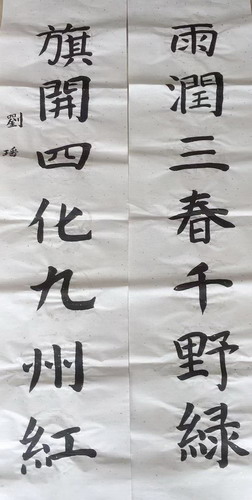 雨潤三春千野緑
旗開四化九州紅
劉瑤